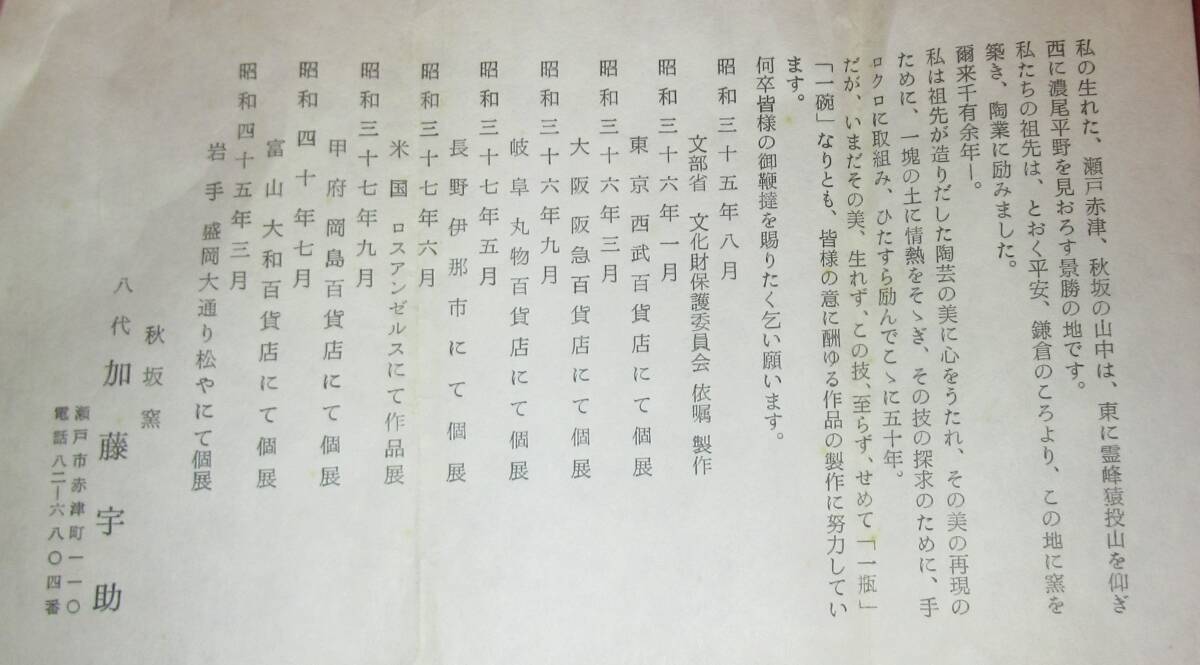 私の生れた、瀬戸赤津、秋坂の山中は、東に霊峰猿投山を仰ぎ
西に濃尾平野を見おろす景勝の地です。
私たちの祖先は、とおく平安、鎌倉のころより、この地に窯を
築き、陶業に励みました。
爾来千有余年ー。
私は祖先が造りだした陶芸の美に心をうたれ、その美の再現の
ために、一塊の土に情熱をそゝぎ、その技の探求のために、手
ロクロに取組み、ひたすら励んでこゝに五十年。
だが、いまだその美、生れず、この技、至らず、せめて「一瓶」
「一碗」なりとも、皆様の意に酬ゆる作品の製作に努力してい
ます。
何卒皆様の御鞭撻を賜りたく乞い願います。
昭和三十五年八月
文部省 文化財保護委員会 依嘱 製作
昭和三十六年一月
東京 西武百貨店にて個展
昭和三十六年三月
大阪 阪急百貨店にて個展
昭和三十六年九月
岐阜 丸物百貨店にて個展
昭和三十七年五月
長野伊那市にて個展
昭和三十七年六月
米国 ロスアンゼルスにて作品展
昭和三十七年九月
甲府 岡島百貨店にて個展
昭和四十年七月
富山 大和百貨店にて個展
昭和四十五年三月
岩手 盛岡大通り松やにて個展
秋坂窯
八代 加藤宇助
瀬戸市赤津町一一〇
電話八二ー六八〇四番